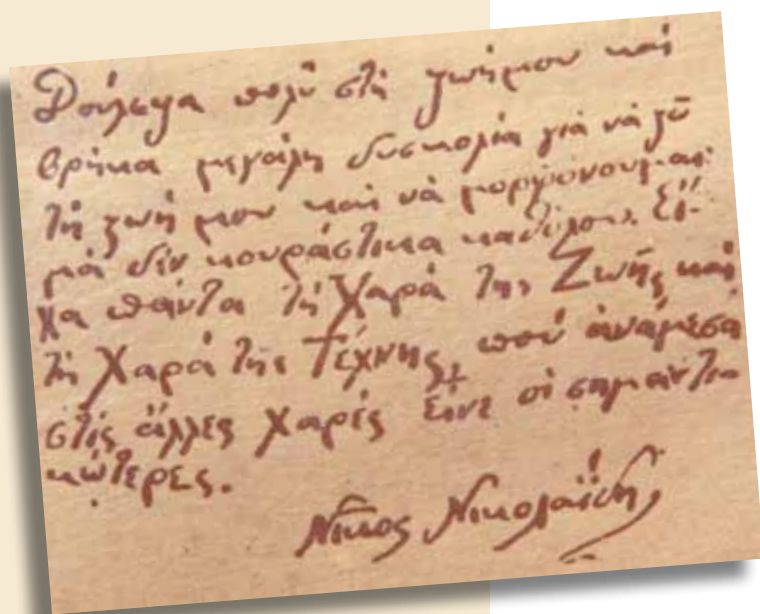 Δούλεψα πολὺ στὴ ζωή μου καὶ
βρῆκα μεγάλη δυσκολία γιὰ νὰ ζῶ
τὴ ζωή μου καὶ νὰ μορφώνουμαι·
μὰ δὲν κουράστικα καθόλου. Εἶ-
χα πάντα τὴ Χαρὰ τῆς Ζωῆς καὶ
τὴ Χαρὰ τῆς Τέχνης, ποὺ ἀνάμεσα
στὶς ἄλλες Χαρὲς εἶνε οἱ σημαντι-
κώτερες.
Νῖκος Νικολαΐδης